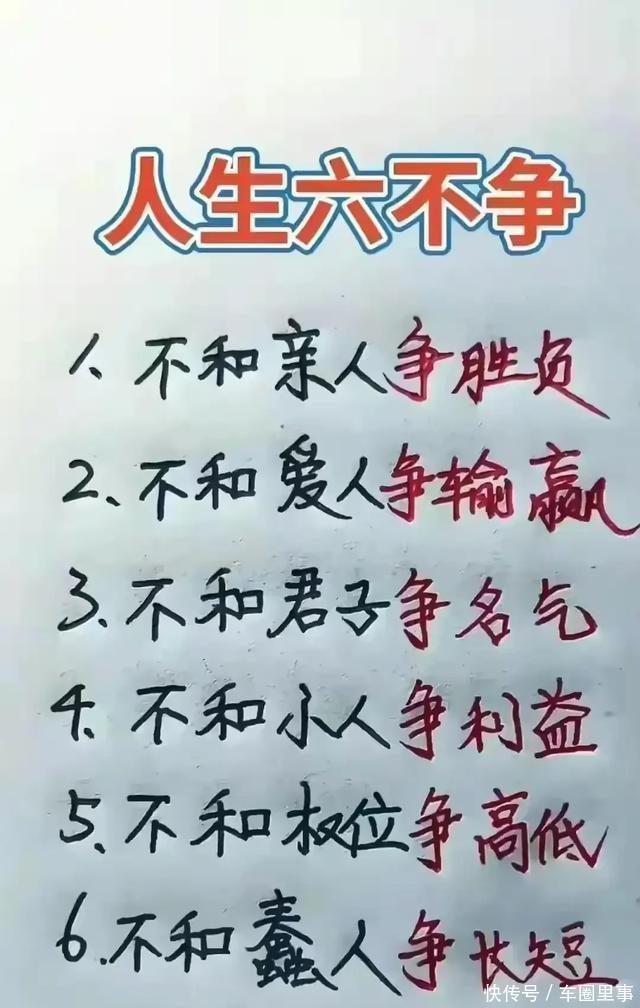 人生六不争
1、不和亲人争胜负
2、不和爱人争输赢
3、不和君子争名气
4、不和小人争利益
5、不和权位争高低
6.不和蠢人争长短
快传号/车圈里事